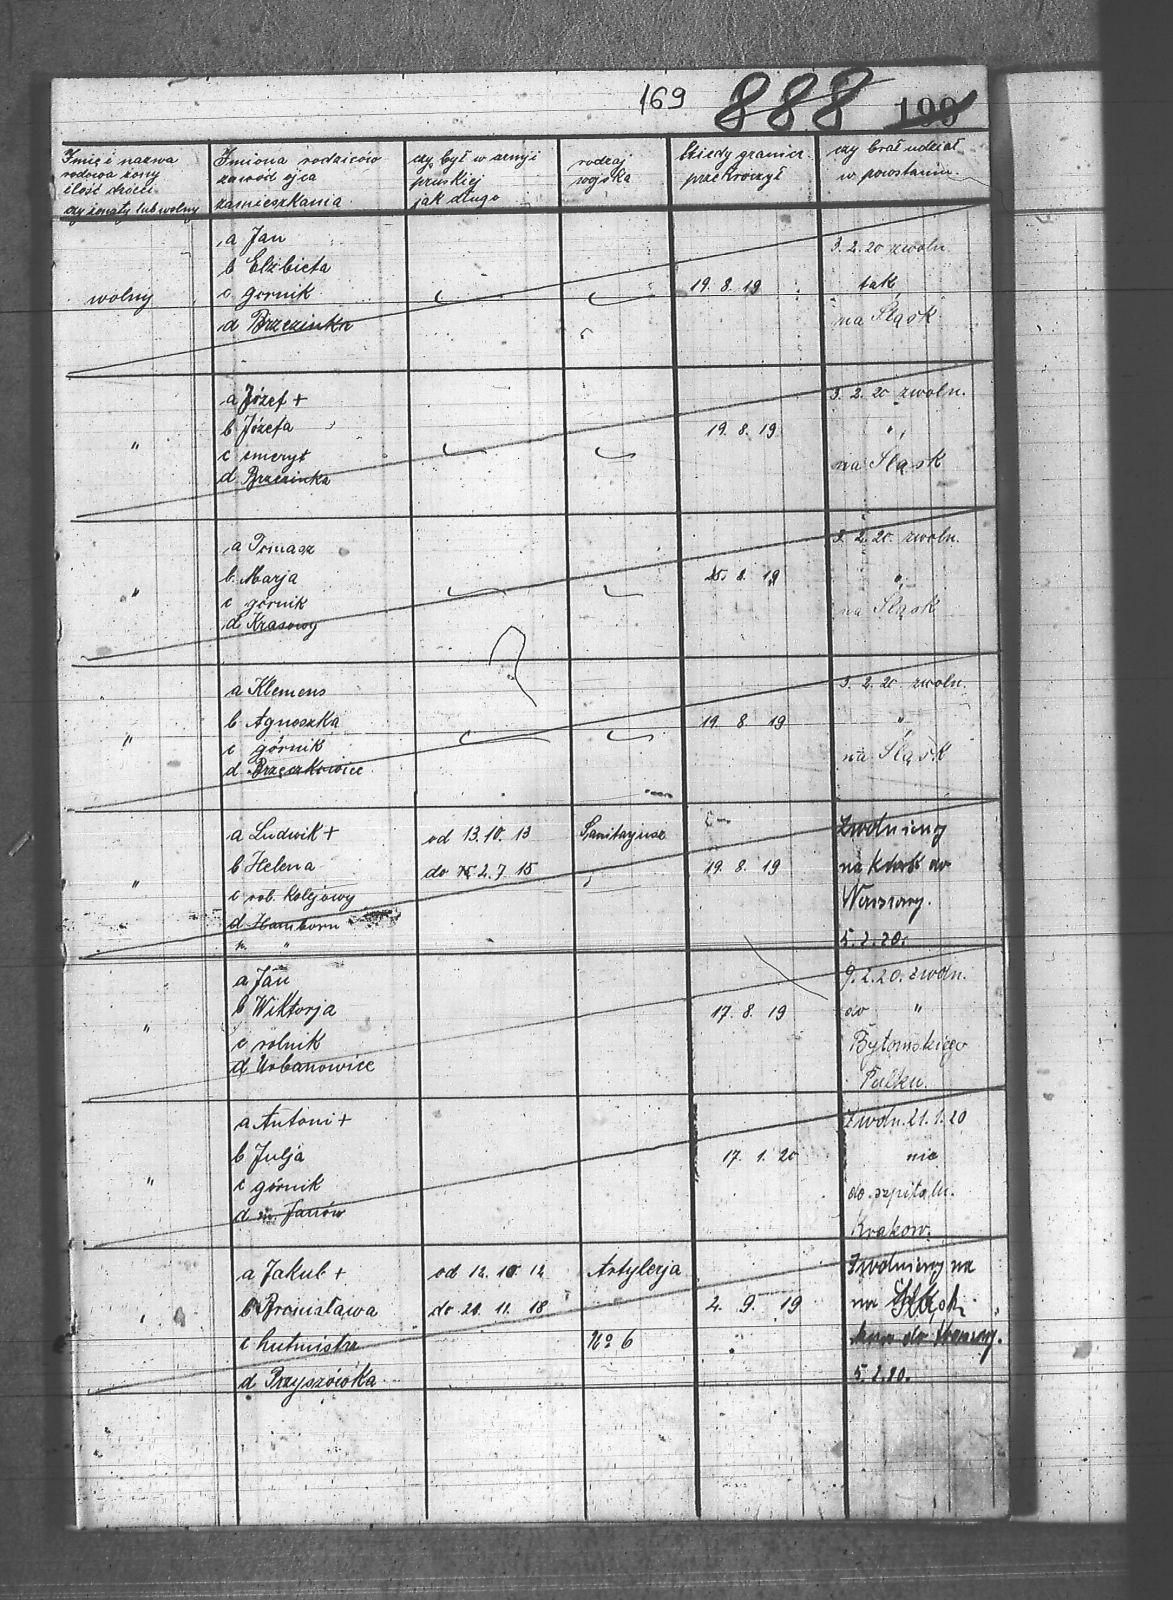 169 888 199
Imię i nazwa
rodowa żony
ilość dzieci
czy żonaty lub wolny
Imiona rodziców
zawód ojca
zamieszkania
czy był w armji
pruskiej
jak długo
rodzaj
wojska
kiedy granicę
przekroczył
czy brał udział
w powstaniu
wolny
a Jan
b Elżbieta
c górnik
d Brzezinka
19. 8. 19
3. 2. 20 zwoln.
tak
na Śląsk
"
a Józef +
b Józefa
c emeryt
d Brzezinka
19. 8. 19
3. 2. 20 zwoln.
"
na Śląsk
"
a Tomasz
b Marja
c górnik
d Krasowy
25. 8. 19
3. 2. 20. zwoln.
"
na Śląsk
"
a Klemens
b Agnieszka
c górnik
d Brzęczkowice
19. 8. 19
3. 2. 20. zwoln.
"
na Śląsk
"
a Ludwik +
b Helena
c rob. kolejowy
d Hamborn
" "
od 13. 10. 13
do 2. 7. 15
Sanitarjusz
19. 8. 19
Zwolniony
na do
Warszawy.
5. 2. 20.
"
a Jan
b Wiktorja
c rolnik
d Urbanowice
17. 8. 19
9. 2. 20. zwoln.
do "
Bytomskiego
Pułku.
"
a Antoni +
b Julja
c górnik
d Janów
17. 1. 20
Zwoln. 21. 1. 20
nie
do szpitalu.
Krakow.
"
a Jakub +
b Bronisława
c hutmistrz
d Przyszówka
od 12. 10. 12
do 21. 11. 18
Artylerja
No 6
2. 9. 19
Zwolniony na
na Śląsk
do
5. 2. 20.